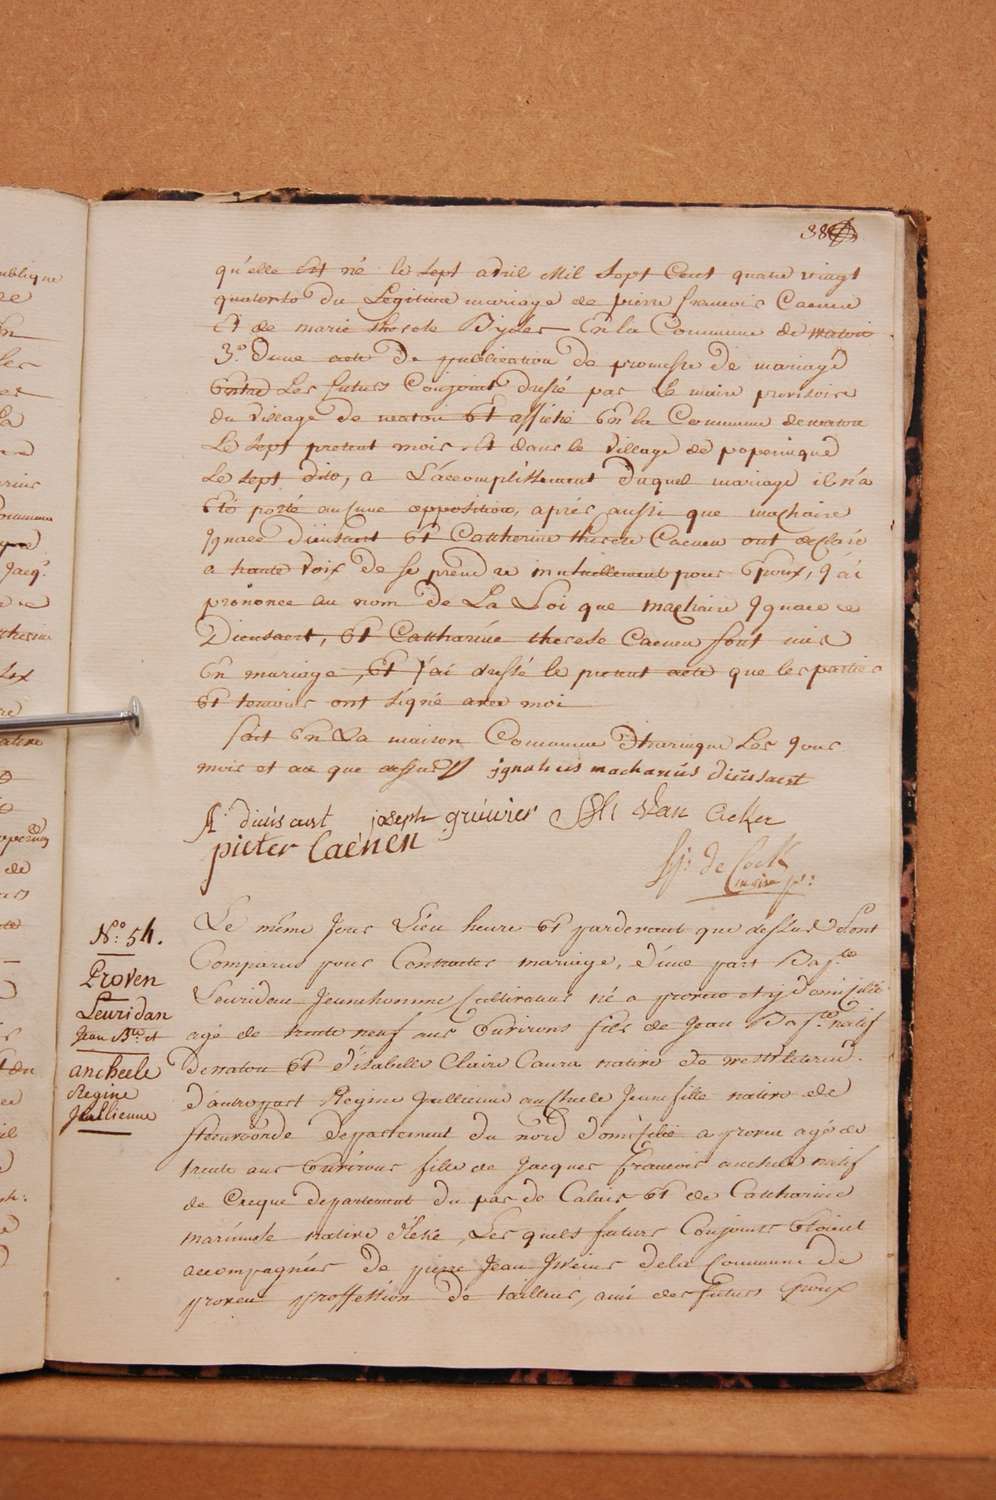 38
qu'elle est né le sept avril Mil Sept Cent quatre vingt
quatorto du Légitime mariage de pierre francois Caenen
Et de marie therese En la Commune de watou
3.o D'une acte De publication De promesse De mariage
Entre Les futurs Conjoints dressé par Le maire provisoire
du village de watou Et affiché En la Commune de watou
Le sept present mois, Et dans le village de poperinque
Le sept dito, a L'accomplissement Duquel mariage il n'a
Eté porté aucune opposition, aprés aussi que machaire
Ignace Dieusaert Et Catherine therese Caenen ont declaré
a haute voix De se prendre mutuellement pour Epoux, j'ai
prononcé au nom de La Loi que machaire Ignace
Dieusaert, Et Catharine therese Caenen sont unis
En mariage, Et j'ai dressé le present acte que les parties
Et temoins ont signé avec moi
fait En La maison Commune Les Jour
mois et an que dessus ignatius macharius dieusaert
dieusaert joseph gruwier van acker
pieter Caenen
de Cock
maire
N.o 54.
Proven
Leuridan
Jean B.te et
ancheele
Regine
Jullienne
Le même Jour Lieu heure Et pardevant que dessus Sont
Comparus pour Contracter mariage, d'une part
Leuridan Jeunehomme Cultivateur né a proven et y Domicilié
agé de trente neuf ans Environs fils de Jean natif
De watou Et d'isabelle Claire natire de westvleteren.
d'autre part Regine Jullienne ancheele Jeune fille natire de
Steenvoorde Departement du nord Domicilié a proven agé de
trente ans Environs fille de Jacques francois ancheele natif
de Departement du pas de Calais Et de Catharine
natire Les quels futurs Conjoints Etoient
accompagnées De pierre Jean De la Commune De
proven proffession De tailleur, ami des futurs Epoux